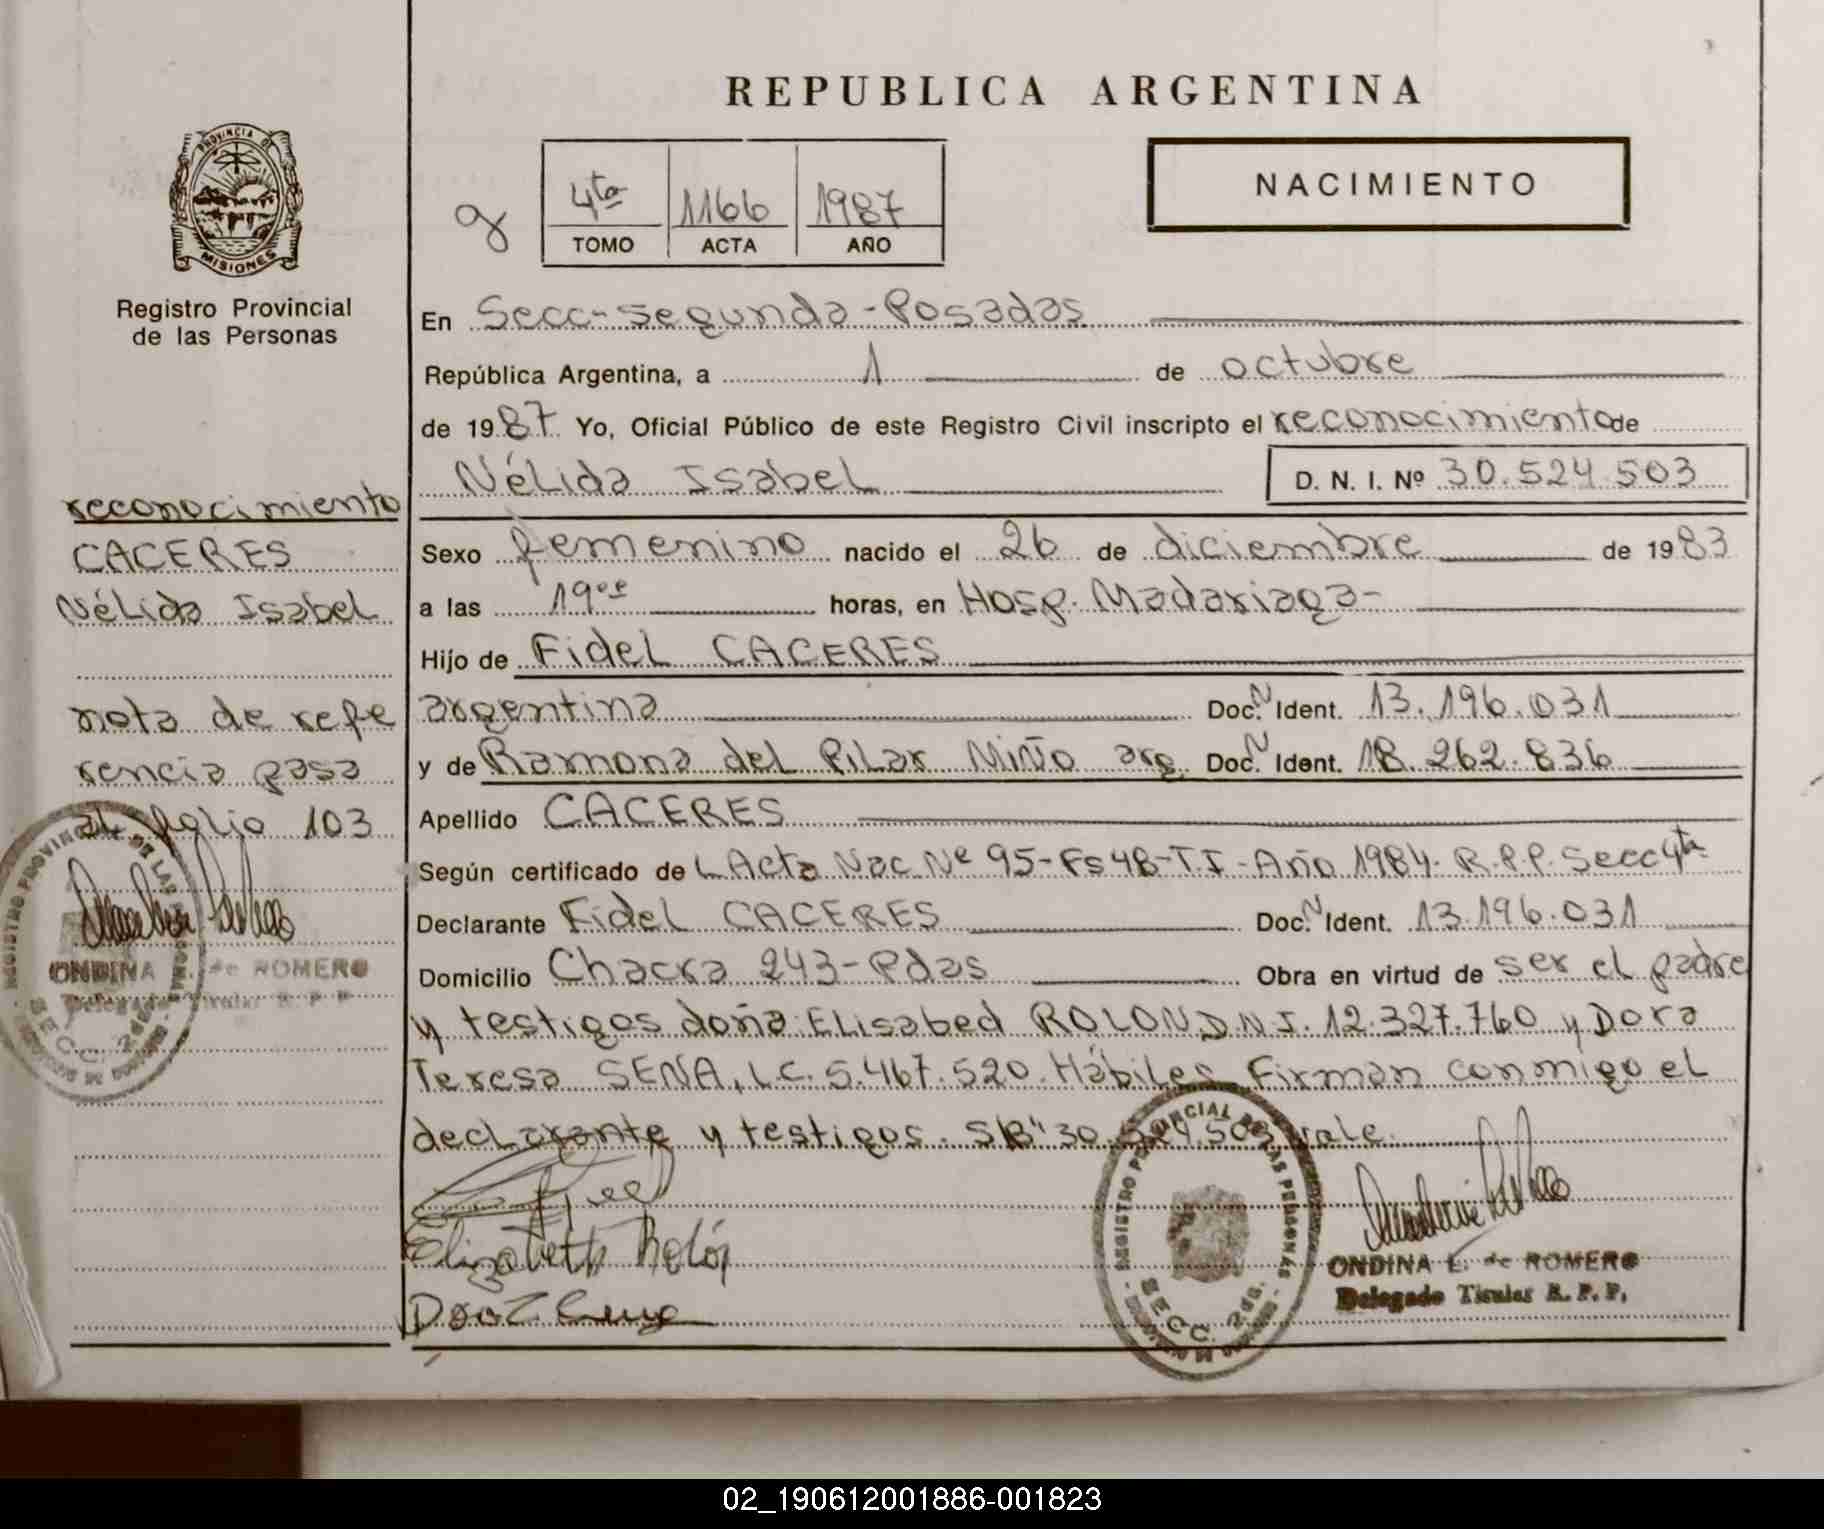 REPUBLICA ARGENTINA
PROVINCIA DE
MISIONES
Registro Provincial
de las Personas
4ta 1166 1987
TOMO ACTA AÑO
NACIMIENTO
En Secc-segunda-Posadas
República Argentina, a 1 de octubre
de 1987 Yo, Oficial Público de este Registro Civil inscripto el reconocimiento de
Nélida Isabel D. N. I. Nº 30.524.503
Sexo femenino nacido el 26 de diciembre de 1983
a las 19 horas, en Hosp. Madariaga-
Hijo de Fidel CACERES
argentina Doc. N Ident. 13.196.031
y de Ramona del Pilar Miño arg Doc. N Ident. 18.262.836
Apellido CACERES
Según certificado de L Acta Nac Nº 95-Fs 48-T.I-Año 1984- R.P.P. Secc 4ta
Declarante Fidel CACERES Doc. N Ident. 13.196.031
Domicilio Chacra 243-Pdas Obra en virtud de ser el padre
y testigos doña Elisabed ROLON D.N.I. 12.327.760 y Dora
Teresa SENA, L.C. 5.467.520. Hábiles Firman conmigo el
declarante y testigos. S/B" 30.524.503 vale.
Elizabeth Rolón
ONDINA E. de ROMERO
Delegado Titular R. P. P.
REGISTRO PROVINCIAL DE LAS PERSONAS
SECC. 2da.
reconocimiento
CACERES
Nélida Isabel
nota de refe
rencia pasa
al folio 103
ONDINA E. de ROMERO
Delegado Titular R. P. P.
REGISTRO PROVINCIAL DE LAS PERSONAS
SECC. 2da.
02_190612001886-001823